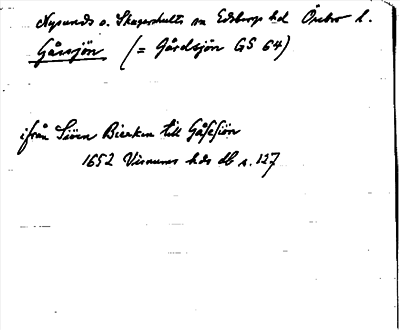 Nysunds o. Skagershults sn Edsbergs hd Örebro l.
Gåssjön (= Gårdsjön GS 64)
ifrån Siöen Bierken till Gåsesiön
1652 Visnums hds db s. 127